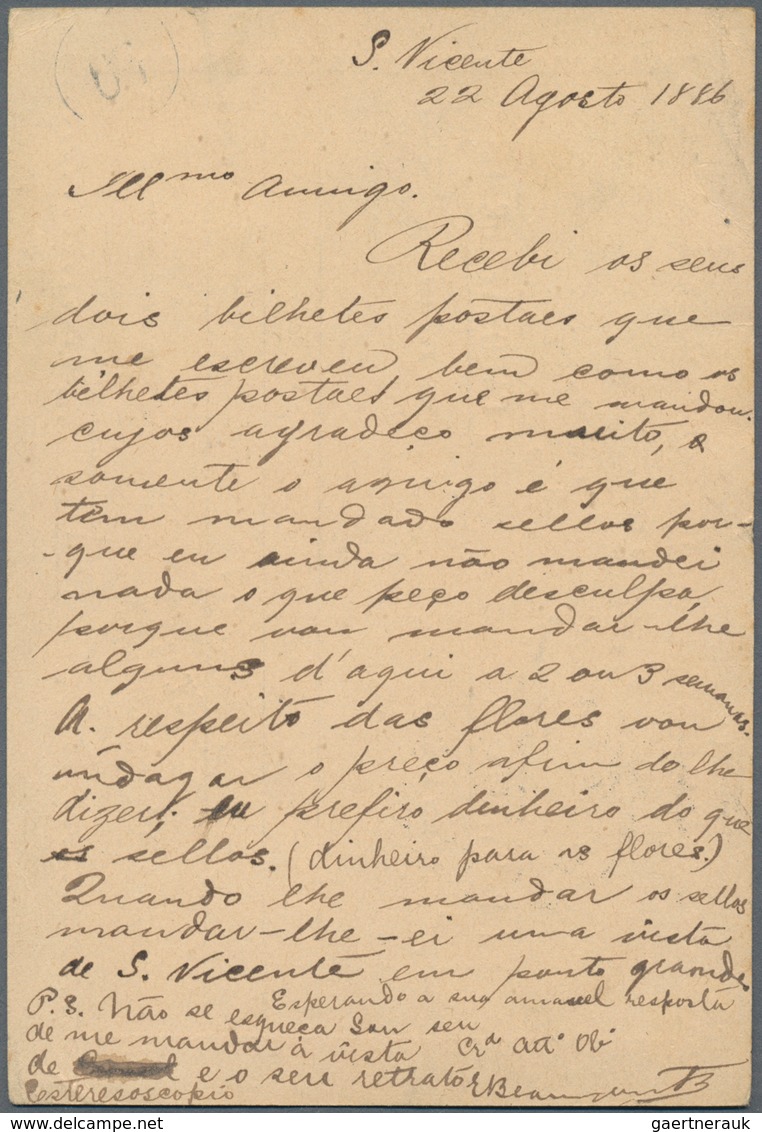 S. Vicente
22 Agosto 1886
Ill.mo Amigo.
Recebi os seus
dois bilhetes postaes que
me escreveu bem como os
bilhetes postaes que me mandou.
cujos agradeço muito, e
somente o amigo é que
tem mandado sellos por-
-que eu ainda não mandei
nada o que peço desculpa,
porque vou mandar-lhe
alguns d'aqui a 2 ou 3 semanas.
A. respeito das flores vou
indagar o preço afim do lhe
dizer. eu prefiro dinheiro do que
os sellos. (dinheiro para as flores.)
Quando lhe mandar os sellos
mandar-lhe-ei uma vista
de S. Vicente em ponto grande
Esperando a sua amavel resposta
Sou seu
Cr.o att.o Ob.o
P.S. Não se esqueça
de me mandar a vista
de e o seu retrato
esteresoscopio
gaertnerauk